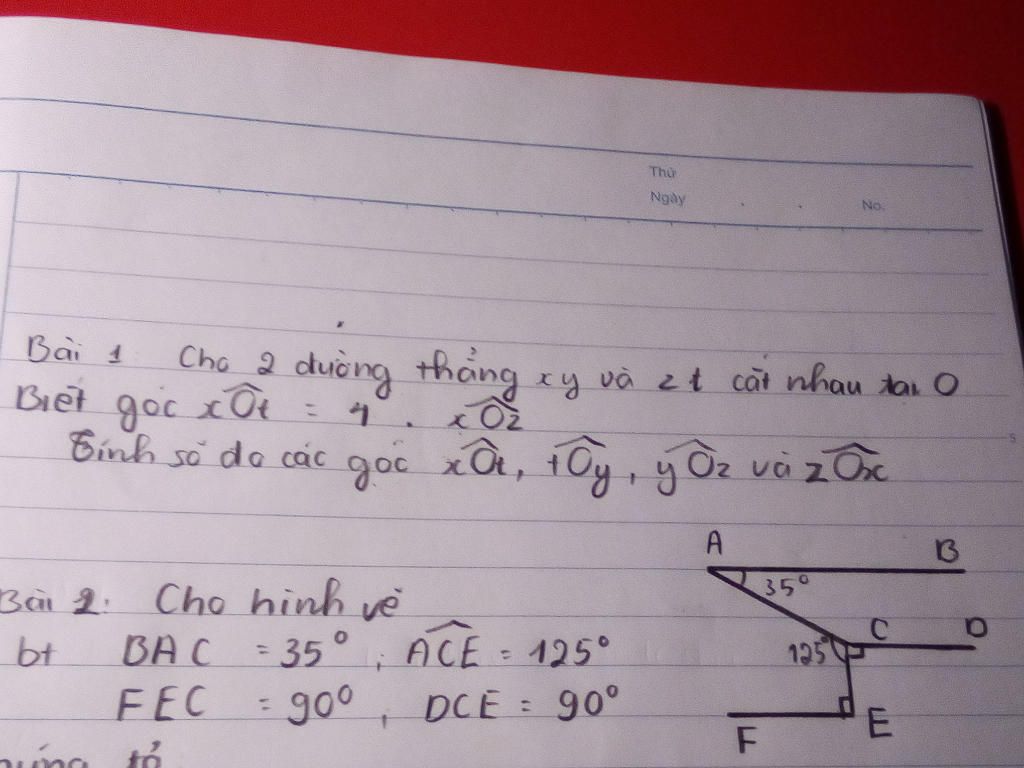 Thứ
Ngày . . No.
Bài 1 Cho 2 đường thẳng xy và zt cắt nhau tại O
Biết góc xOt = 4 . xOz
Tính số đo các góc xOt, tOy, yOz và zOx
A B
35°
C D
125°
E
F
Bài 2: Cho hình vẽ
bt BAC = 35° ; ACE = 125°
FEC = 90° , DCE = 90°
tỏ